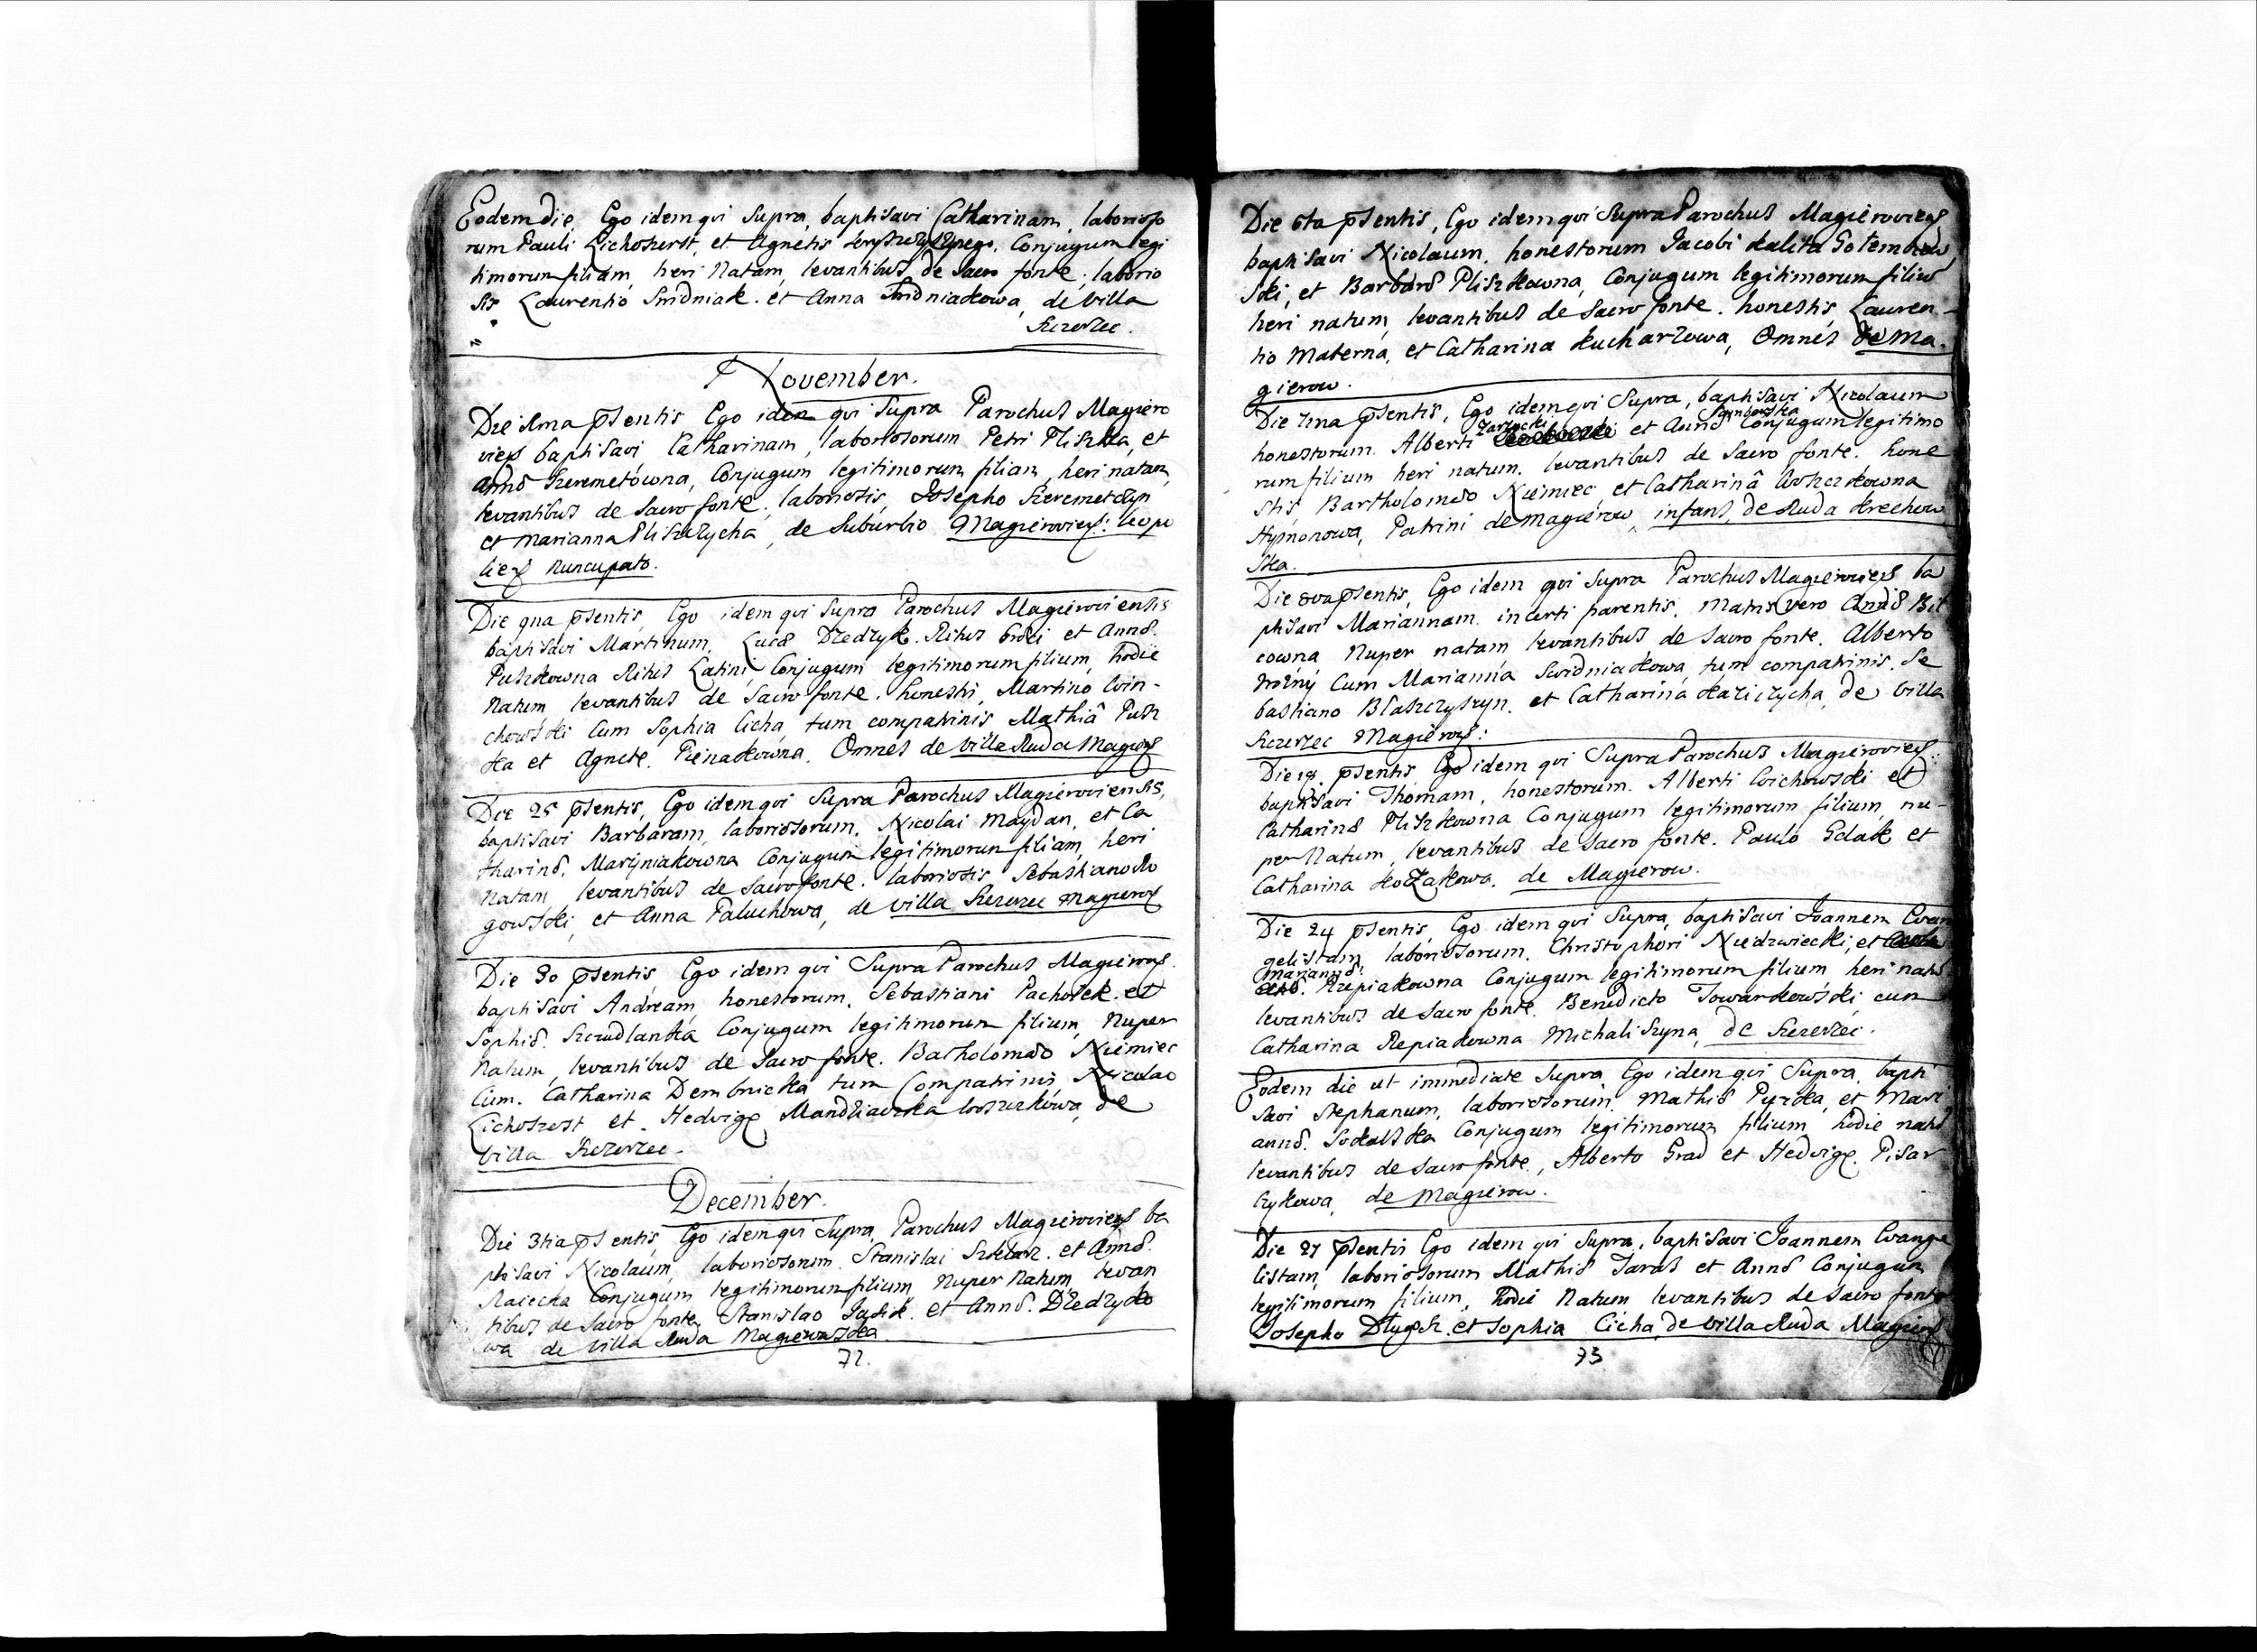 Eodem die, Ego idem qui Supra, baptisavi Catharinam, laborioso
rum Pauli Lichoszerst, et Agnetis Conjugum legi
timorum filiam, heri Natam, levantibus de Sacro fonte, laborio
sis Laurentio Smidniak. et Anna Smidniakowa, de villa
Szczerzec.
November.
Die psentis Ego idem qui Supra Parochus Magiero
vieñs baptisavi Catharinam, laboriosorum Petri Pliszka, et
Annæ Szeremetówna, Conjugum legitimorum filiam, heri natam,
levantibus de Sacro fonte, laboriosis, Josepho Szeremetczyn
et Marianna Pliszczycha, de Suburbio Magierovieñs: leopo
lieñs Nuncupato.
Die 9na psentis, Ego idem qui Supra Parochus Magieroviensis
baptisavi Martinum, Lucæ Dzedzyk. Ritus et Annæ.
Puszkowna Ritus Latini Conjugum legitimorum filium, hodie
Natum levantibus de Sacro fonte. honesti, Martino Win-
chowski Cum Sophia Cicha, tum compatrinis Mathiâ Pusz
ka et Agnete. Pienakowna. Omnes de villa Ruda Magierovs
Die 25 psentis, Ego idem qui Supra Parochus Magieroviensis,
baptisavi Barbaram, laboriosorum. Nicolai Maydan, et Ca
tharinæ. Martyniakowna Conjugum legitimorum filiam, heri
Natam, levantibus de Sacro fonte. laboriosis Sebastiano Ro
gowski, et Anna Paluchowa, de villa Szczerzec Magierovs
Die 30 psentis, Ego idem qui Supra Parochus Magierovs
baptisavi Andream, honestorum. Sebastiani Pacholek. et
Sophiæ. Conjugum legitimorum filium, Nuper
Natum, levantibus de Sacro fonte. Bartholomæo Niemiec
Cum. Catharina Dembnicka tum Compatrinis, Nicolao
Lichoszerst et. Hedvige Mandziarska Woszczkowa, de
villa Szczerzec.
December.
Die 3tia psentis, Ego idem qui Supra, Parochus Magierovieñs ba
ptisavi Nicolaum, laboriosorum. Stanislai Szklarz. et Annæ.
Raiecka Conjugum legitimorum filium Nuper Natum, levan
tibus de Sacro fonte. Stanislao et Annæ. Dzedzyko
wa de villa Ruda Magierowska
72.
Die 6ta psentis, Ego idem qui Supra Parochus Magierovieñs
baptisavi Nicolaum. honestorum Jacobi Kalita Golembiow
ski, et Barbaræ Pliszkowna, Conjugum legitimorum filium
heri natum, levantibus de Sacro fonte. honestis Lauren-
tio Materna, et Catharina Kucharzowa, Omnes de Ma-
gierow.
Die 7ma psentis, Ego idem qui Supra, baptisavi Nicolaum
honestorum. Alberti Zarzycki et Annæ Conjugum legitimo
rum filium heri natum. levantibus de Sacro fonte. hone
stis, Bartholomæo Niemiec, et Catharinâ Woszczkowna
Hymonowa, Patrini de Magierow, infans, de Ruda Krechow
ska.
Die 8va psentis, Ego idem qui Supra Parochus Magierovieñs ba
ptisavi Mariannam. incerti parentis. Matris vero Annæ Bil
cowna Nuper natam levantibus de Sacro fonte. Alberto
Cum Marianna Swidniakowa, tum compatrinis. Se
bastiano Blaszczyszyn. et Catharina Kaziczycha, de villa
Szczerzec Magierovs:
Die 18. psentis Ego idem qui Supra Parochus Magierovieñs.
baptisavi Thomam, honestorum. Alberti Wichowski et
Catharinæ Pliszkowna Conjugum legitimorum filium, nu-
per Natum, levantibus de Sacro fonte. Paulo Gdak et
Catharina Kozakowa. de Magierow.
Die 24 psentis, Ego idem qui Supra, baptisavi Joannem Evan
gelistam, laboriosorum. Christophori Niedzwiecki, et
Mariannæ. Rzepiakowna Conjugum legitimorum filium heri natū
levantibus de Sacro fonte. Benedicto Towarkowski, cum
Catharina Repiakowna Michaliszyna, de Szczerzec.
Eodem die ut immediate Supra Ego idem qui Supra, bapti
savi Stephanum, laboriosorum. Mathiæ Pyzka, et Mari
annæ. Sokalska Conjugum legitimorum filium, hodie natū
levantibus de Sacro fonte, Alberto Grad et Hedvige. Pisar
czykowa, de Magierow.
Die 27 psentis Ego idem qui Supra, baptisavi Joannem Evange
listam, laboriosorum Mathiæ Taras et Annæ Conjugum
legitimorum filium, hodie Natum levantibus de Sacro fonte
Josepho Dlugosz. et Sophia Cicha, de villa Ruda Magierovs
73